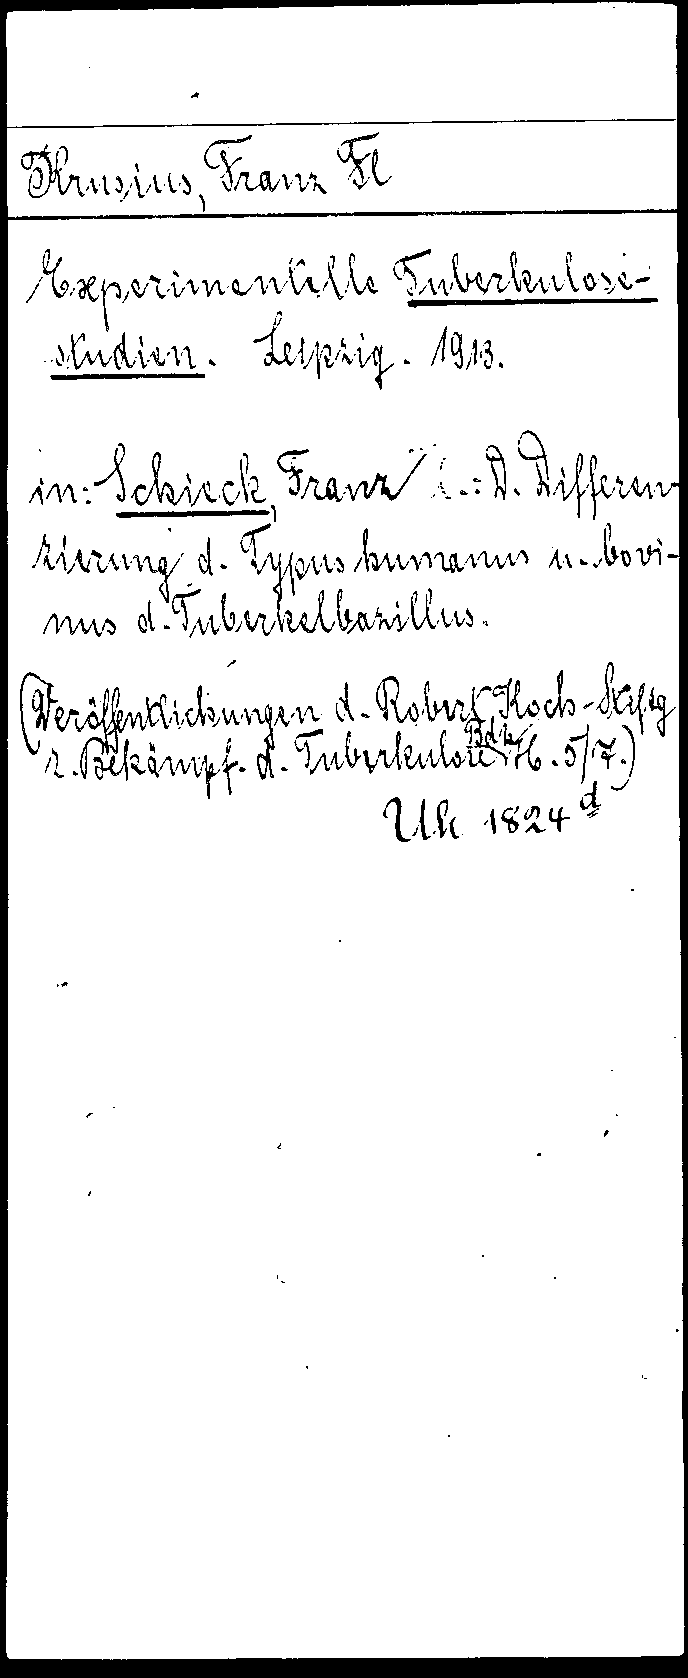 Krusius, Franz Fl
Experimentelle Tuberkulose-
studien. Leipzig. 1913.
in: Schieck, Franz : D. Differen-
zierung d. Typus humanus u. bovi-
nus d. Tuberkelbazillus.
(Veröffentlichungen d. Robert Koch-Stiftg
z. Bekämpf. d. Tuberkulose H. 5/7.)
Uk 1824 d